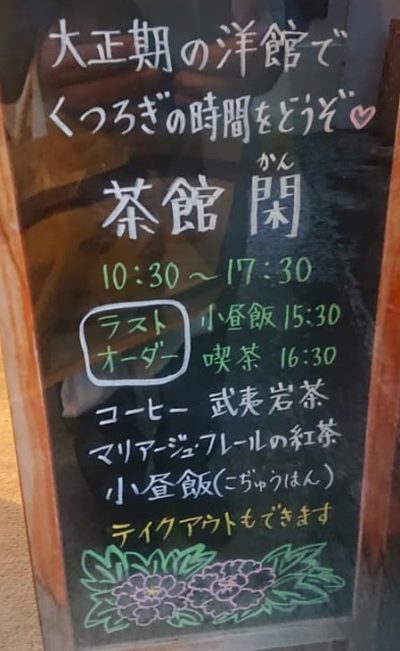 大正期の洋館で
くつろぎの時間をどうぞ♡
かん
茶館 閑
10:30～17:30
ラスト 小昼飯 15:30
オーダー 喫茶 16:30
コーヒー 武夷岩茶
マリアージュ・フレールの紅茶
小昼飯(こぢゅうはん)
テイクアウトもできます